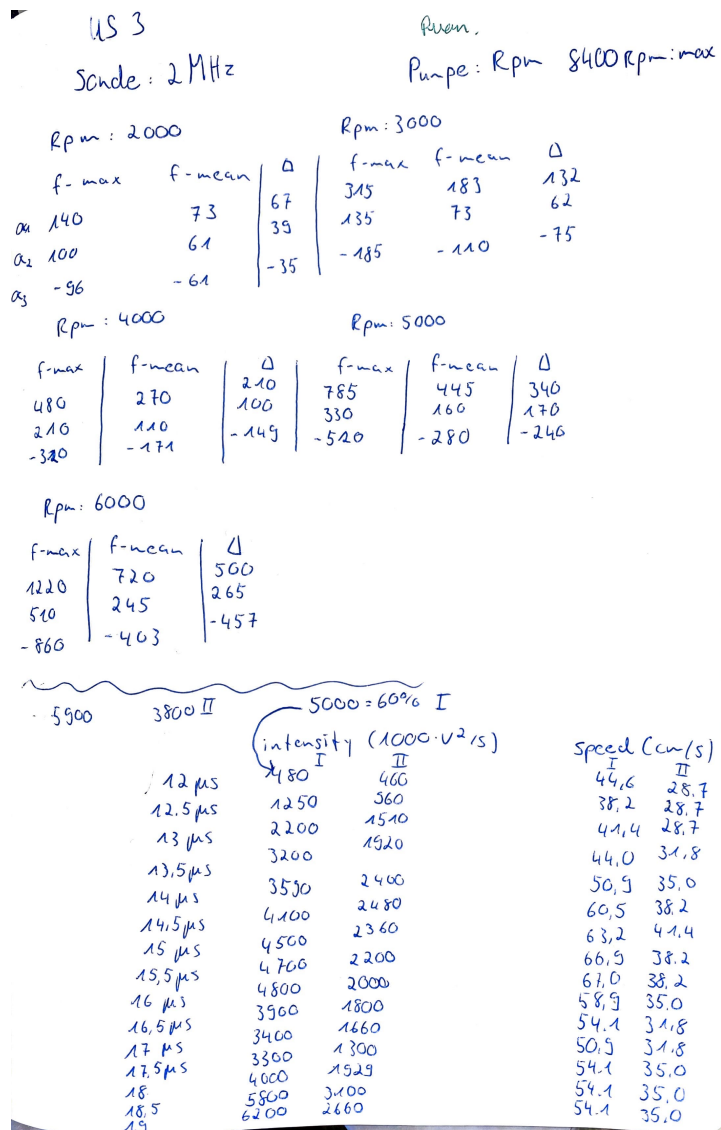 US 3
Sonde: 2 MHz
Pumpe: Rpm 8400 Rpm: max
Rpm: 2000
f-max f-mean Δ
a1 140 73 67
a2 100 61 39
a3 -96 -61 -35
Rpm: 3000
f-max f-mean Δ
315 183 132
135 73 62
-185 -110 -75
Rpm: 4000
f-max f-mean Δ
480 270 210
210 110 100
-320 -171 -149
Rpm: 5000
f-max f-mean Δ
785 445 340
330 160 170
-520 -280 -240
Rpm: 6000
f-max f-mean Δ
1220 720 500
510 245 265
-860 -403 -457
5900 3800 II 5000 = 60% I
intensity (1000·V²/s) speed (cm/s)
I II I II
12 µs 480 460 44,6 28.7
12.5 µs 1250 560 38,2 28.7
13 µs 2200 1510 41,4 28,7
13,5 µs 3200 1920 44,0 31,8
14 µs 3590 2400 50,9 35,0
14,5 µs 4100 2480 60,5 38.2
15 µs 4500 2360 63,2 41.4
15,5 µs 4700 2200 66,9 38.2
16 µs 4800 2000 67,0 38,2
16,5 µs 3900 1800 58,9 35.0
17 µs 3400 1660 54.1 31,8
17,5 µs 3300 1300 50,9 31.8
18 4000 1929 54.1 35,0
18,5 5800 3100 54.1 35,0
19 6200 2660 54.1 35,0